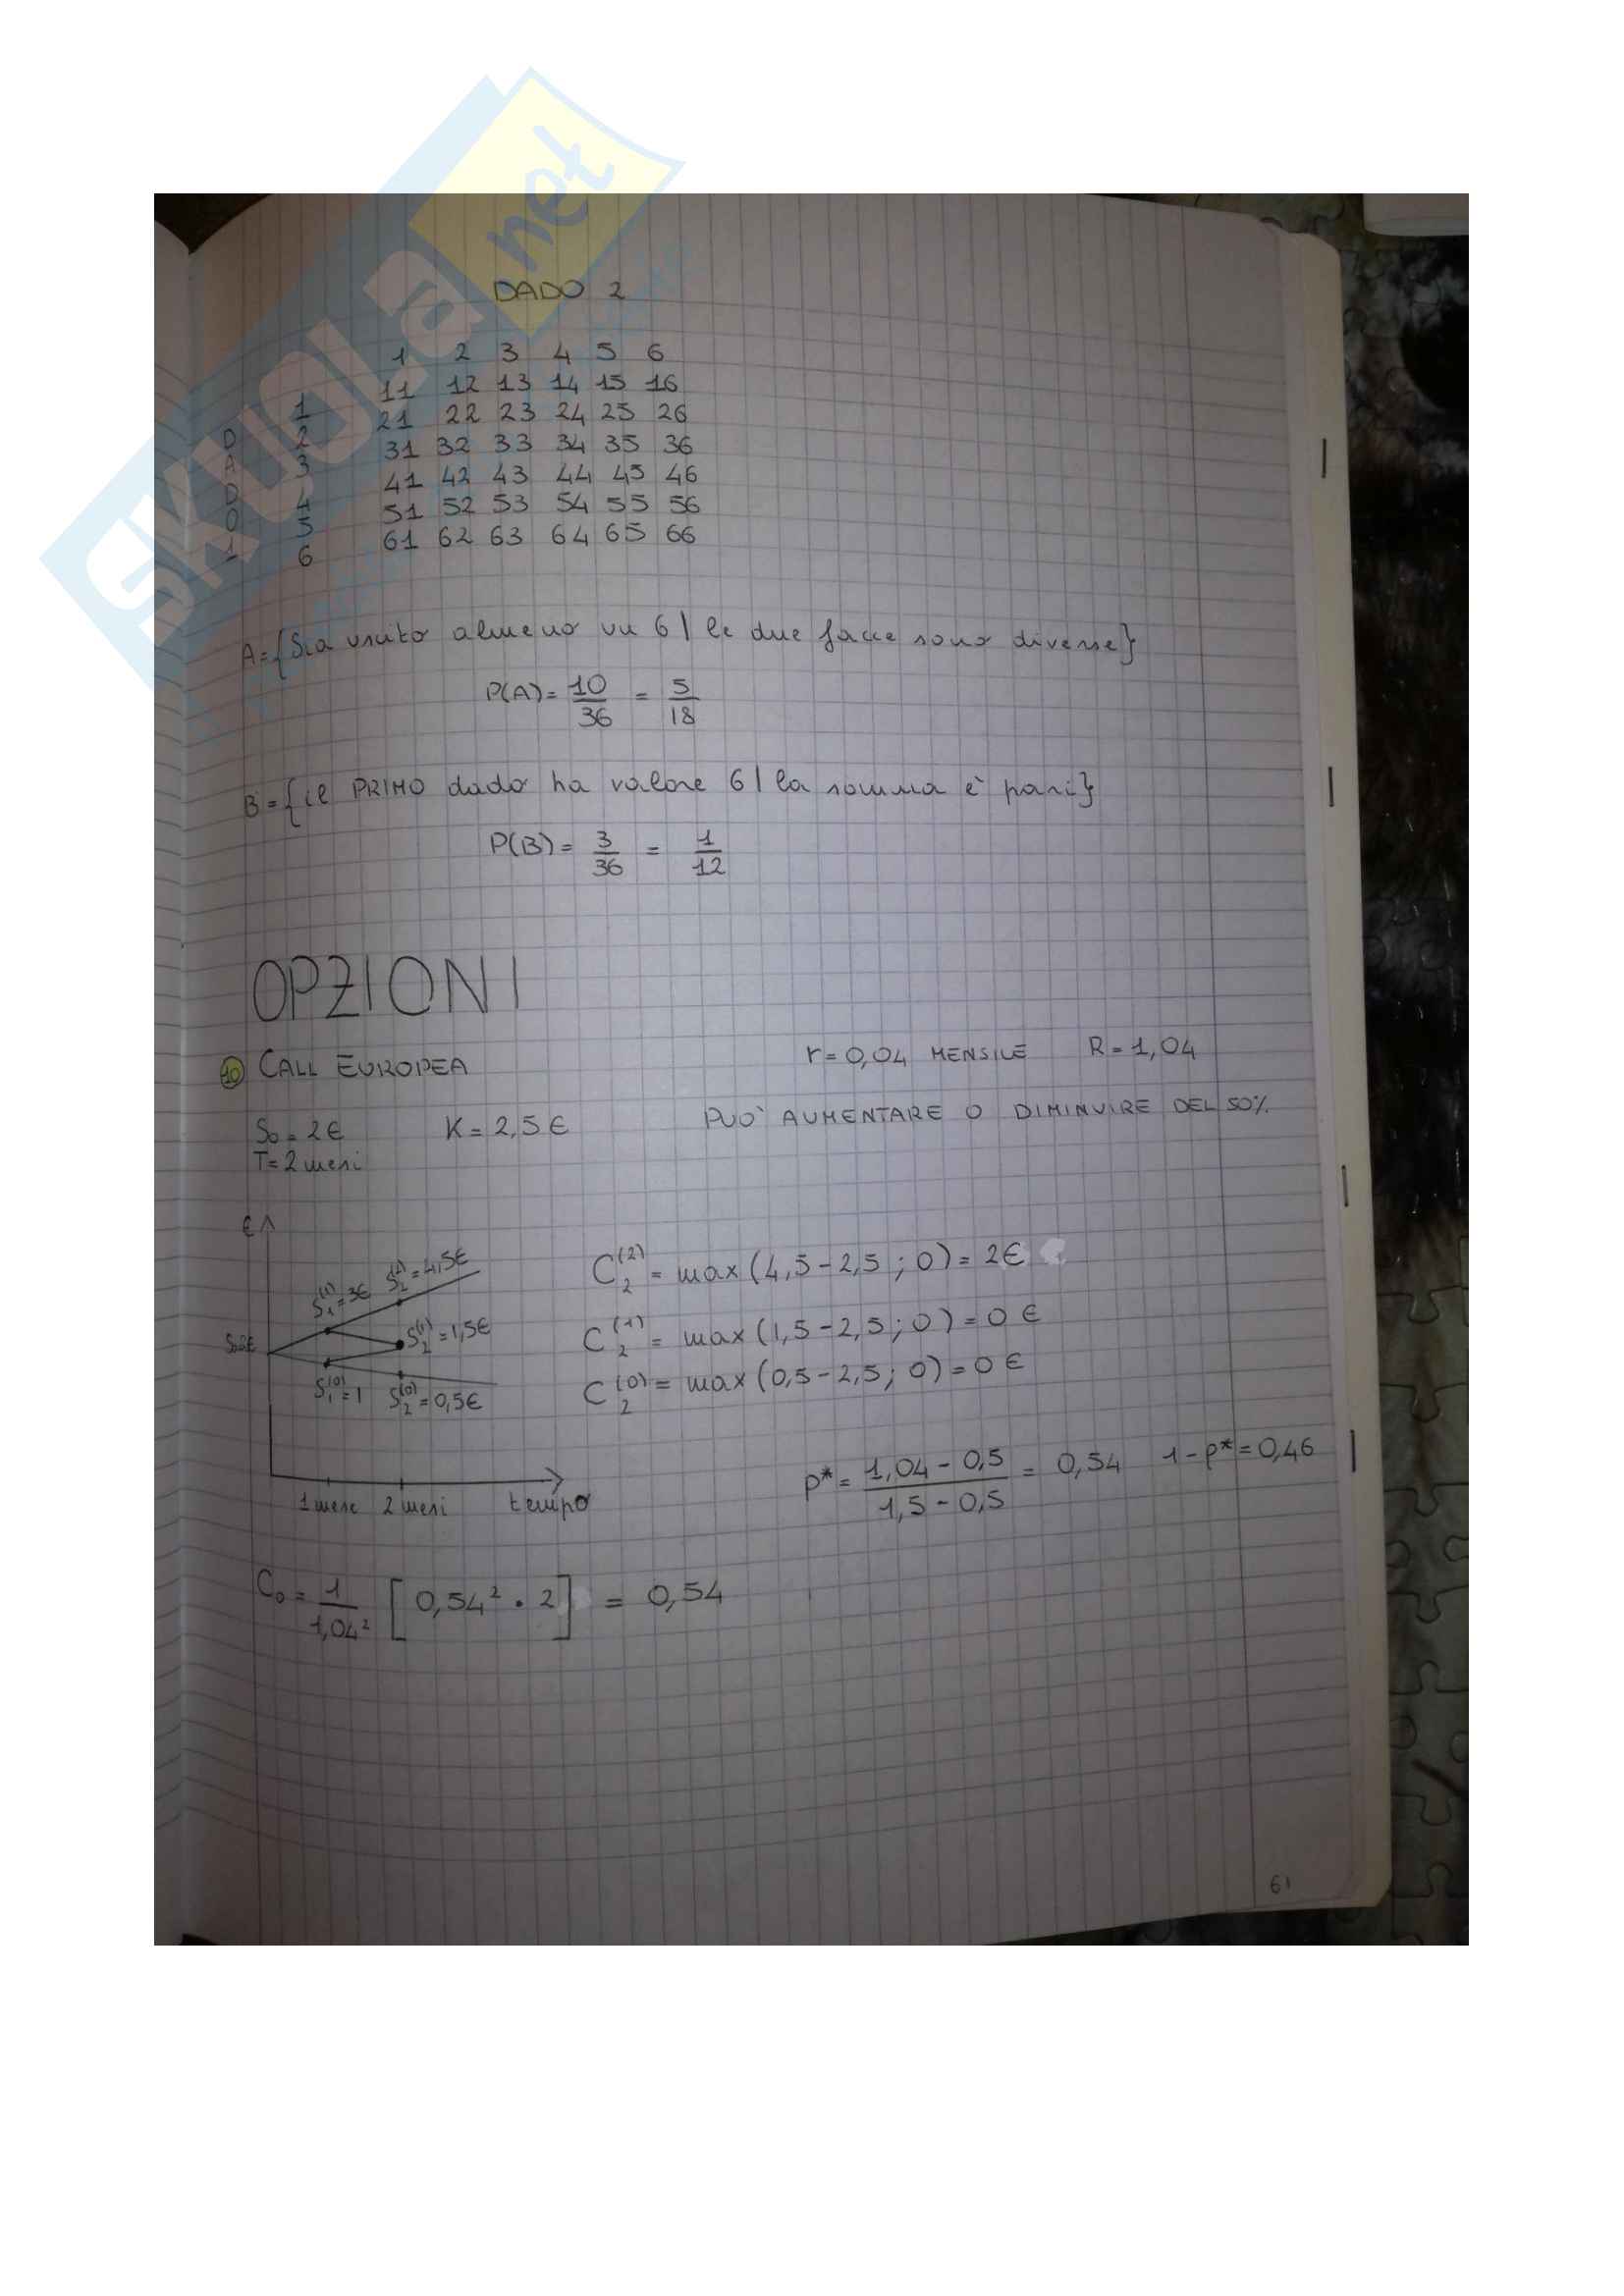 SKUOLA.net
DADO 2
1 2 3 4 5 6
1 11 12 13 14 15 16
D 2 21 22 23 24 25 26
A 3 31 32 33 34 35 36
D 4 41 42 43 44 45 46
O 5 51 52 53 54 55 56
1 6 61 62 63 64 65 66
A={Sia uscito almeno un 6 | le due facce sono diverse}
P(A) = 10/36 = 5/18
B={il PRIMO dado ha valore 6 | la somma è pari}
P(B) = 3/36 = 1/12
OPZIONI
10 CALL EUROPEA r = 0,04 MENSILE R = 1,04
S₀ = 2€ K = 2,5€ PUO' AUMENTARE O DIMINUIRE DEL 50%
T= 2 mesi
€
S₁⁽¹⁾ = 3€ S₂⁽²⁾ = 4,5€ C₂⁽²⁾ = max (4,5 - 2,5 ; 0) = 2€
S₀=2€ S₂⁽¹⁾ = 1,5€ C₂⁽¹⁾ = max (1,5 - 2,5 ; 0) = 0 €
S₁⁽⁰⁾ = 1 S₂⁽⁰⁾ = 0,5€ C₂⁽⁰⁾ = max (0,5 - 2,5 ; 0) = 0 €
p* = (1,04 - 0,5)/(1,5 - 0,5) = 0,54 1 - p* = 0,46
1 mese 2 mesi tempo
C₀ = 1/1,04² [0,54² · 2] = 0,54
61